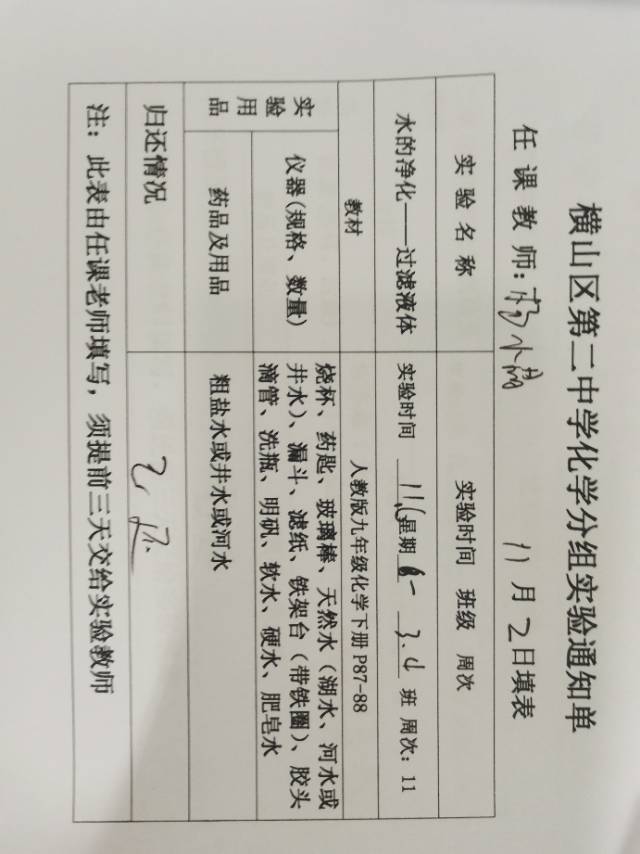 横山区第二中学化学分组实验通知单
任 课 教 师：杨小 11 月 2 日填表
实 验 名 称 实验时间 班级 周次
水的净化——过滤液体 实验时间 11.6 星期 一 3.4 班 周次：11
教材 人教版九年级化学下册 P87-88
实验用品
仪器(规格、数量) 烧杯、药匙、玻璃棒、天然水（湖水、河水或
井水）、漏斗、滤纸、铁架台（带铁圈）、胶头
滴管、洗瓶、明矾、软水、硬水、肥皂水
药品及用品 粗盐水或井水或河水
归还情况 已还
注：此表由任课老师填写，须提前三天交给实验教师